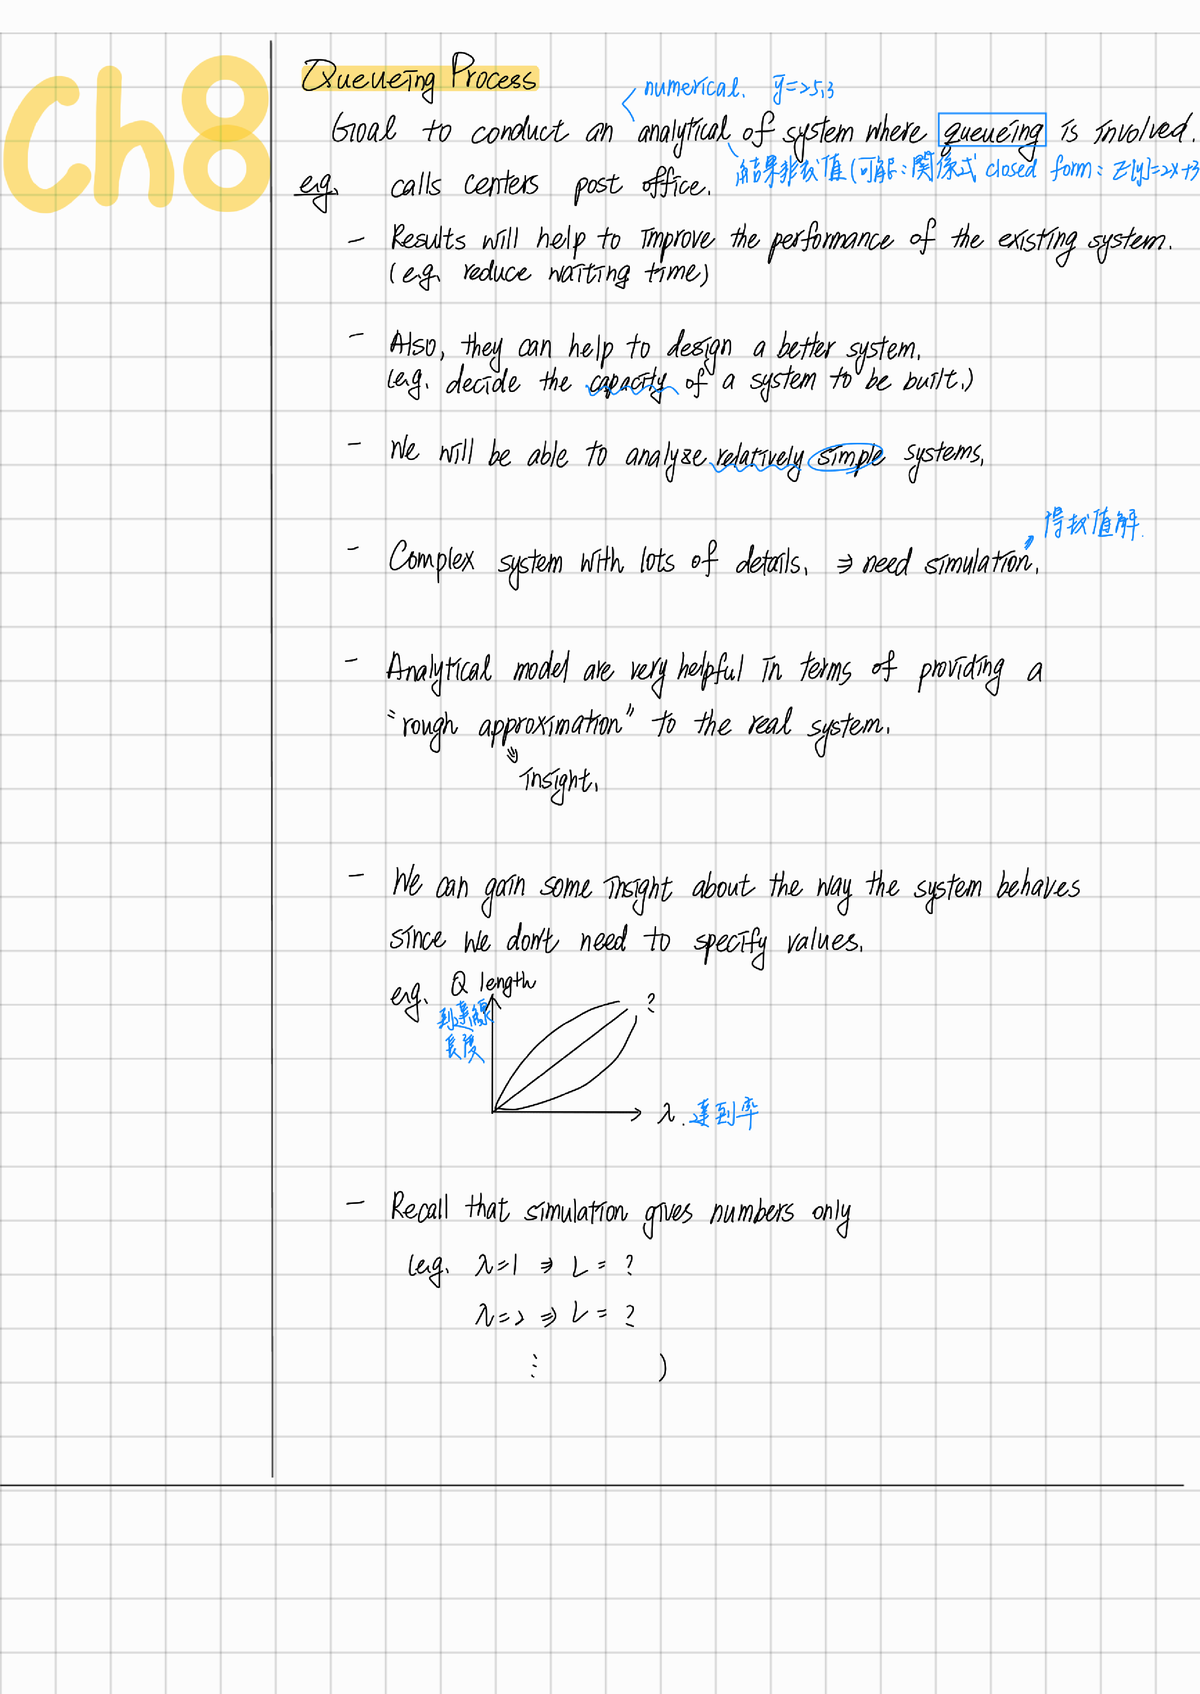 Ch8
Queueing Process
numerical. ȳ=25.3
Goal to conduct an analytical of system where queueing is involved.
結果非数值(可解:関係式 closed form: E[y]=2x+3
e.g. calls centers post office.
- Results will help to improve the performance of the existing system.
(e.g. reduce waiting time)
- Also, they can help to design a better system.
(e.g. decide the capacity of a system to be built.)
- We will be able to analyze relatively simple systems.
得数值解.
- Complex system with lots of details. ⇒ need simulation.
- Analytical model are very helpful in terms of providing a
"rough approximation" to the real system.
⇓
insight.
- We can gain some insight about the way the system behaves
since we don't need to specify values.
e.g. Q length
到達線
長度
?
λ. 達到率
- Recall that simulation gives numbers only
(e.g. λ=1 ⇒ L = ?
λ=2 ⇒ L = ?
⋮ )